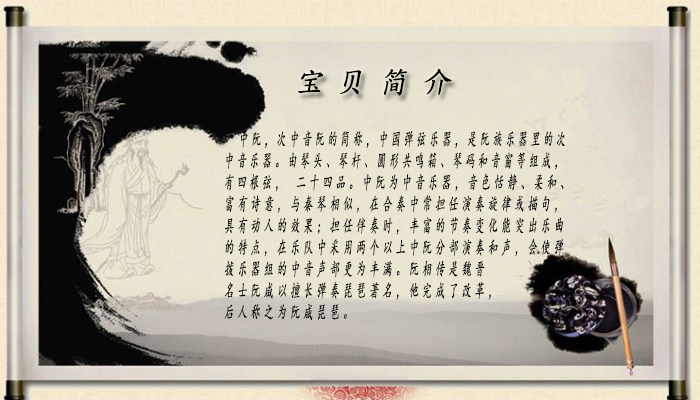 宝贝简介
中阮，次中音阮的简称，中国弹弦乐器，是阮族乐器里的次
中音乐器。由琴头、琴杆、圆形共鸣箱、琴码和音窗等组成，
有四根弦， 二十四品。中阮为中音乐器，音色恬静、柔和、
富有诗意，与秦琴相似，在合奏中常担任演奏旋律或描句，
具有动人的效果；担任伴奏时，丰富的节奏变化能突出乐曲
的特点，在乐队中采用两个以上中阮分部演奏和声，会使弹
拨乐器组的中音声部更为丰满。阮相传是魏晋
名士阮咸以擅长弹奏琵琶著名，他完成了改革，
后人称之为阮咸琵琶。